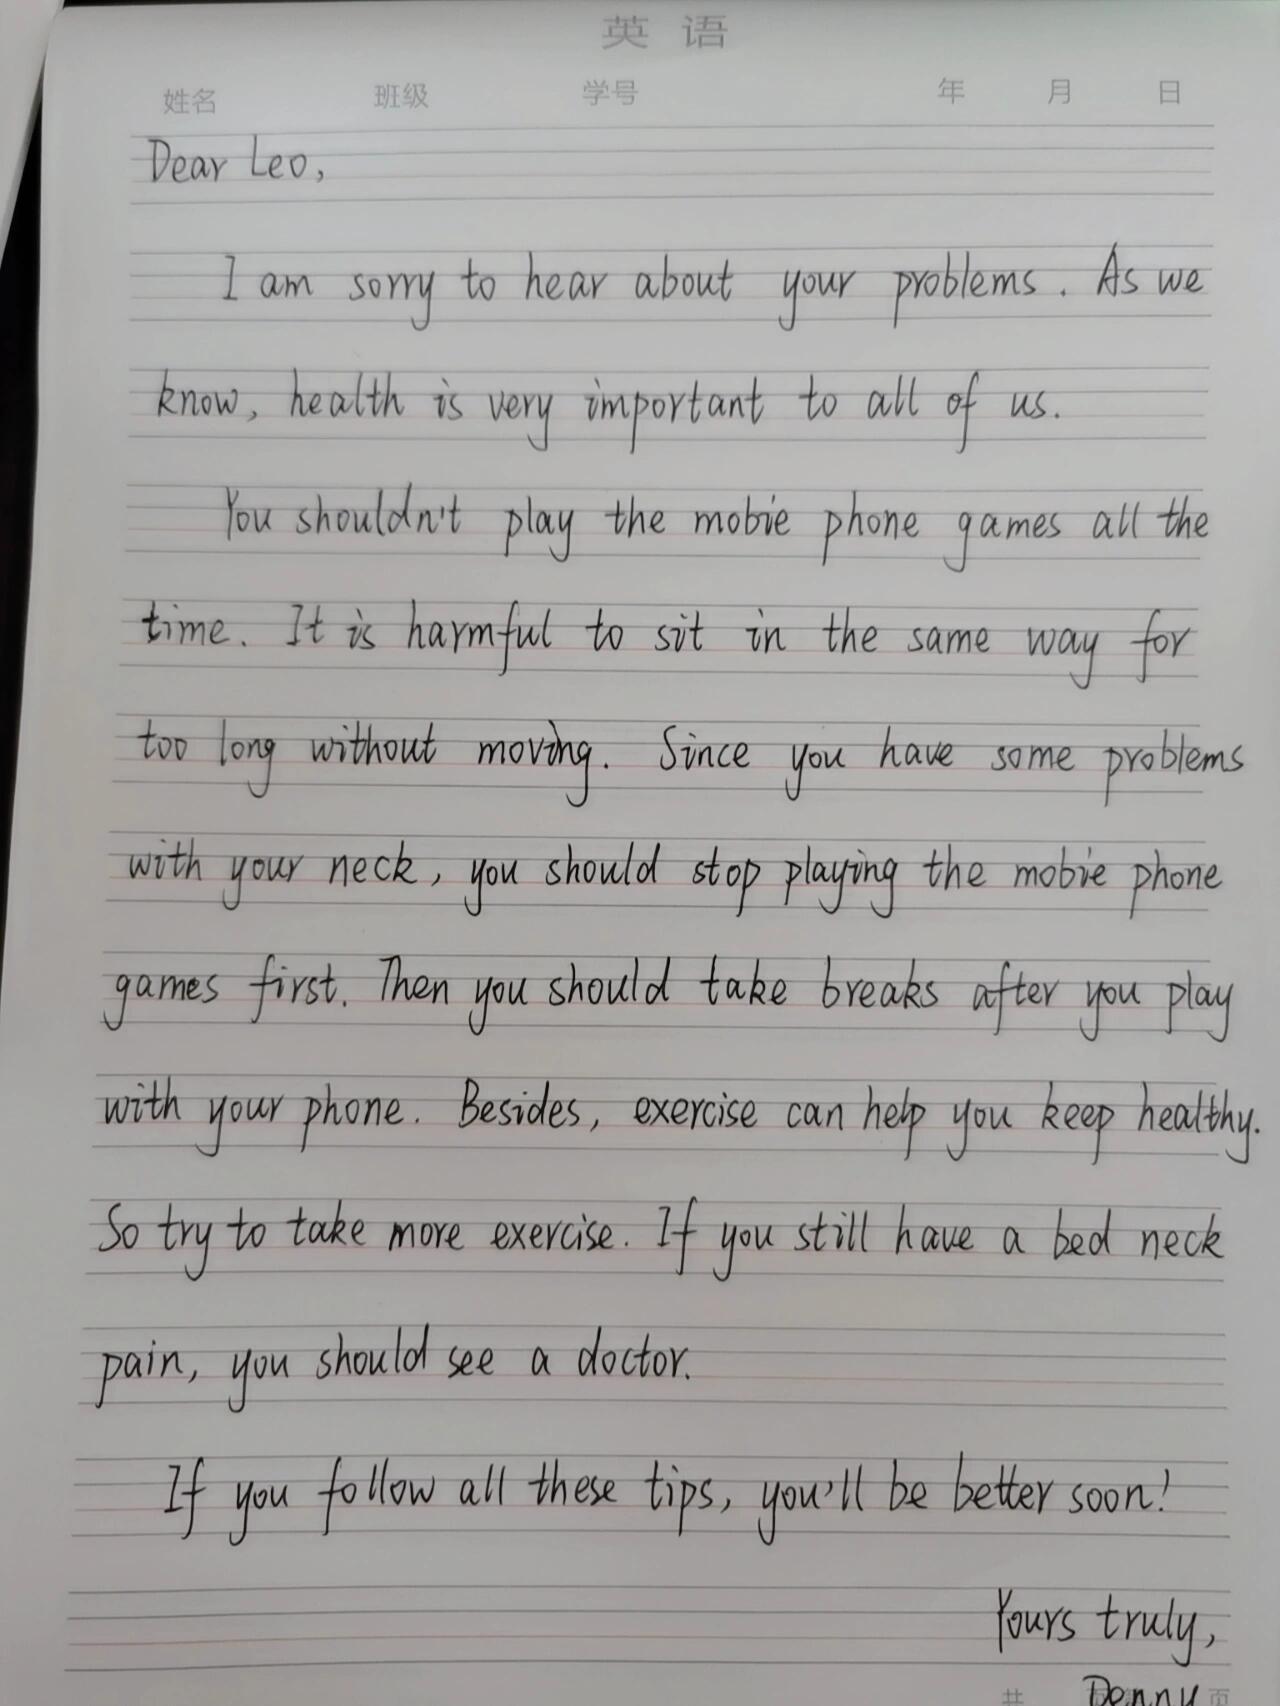 英 语
姓名 班级 学号 年 月 日
Dear Leo,
I am sorry to hear about your problems. As we
know, health is very important to all of us.
You shouldn't play the mobie phone games all the
time. It is harmful to sit in the same way for
too long without moving. Since you have some problems
with your neck, you should stop playing the mobie phone
games first. Then you should take breaks after you play
with your phone. Besides, exercise can help you keep healthy.
So try to take more exercise. If you still have a bed neck
pain, you should see a doctor.
If you follow all these tips, you'll be better soon!
Yours truly,
共 页